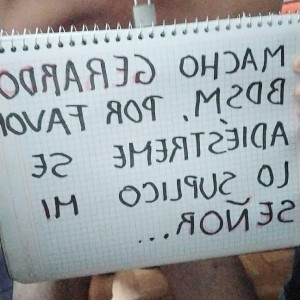 MACHO GERARDO
BDSM, POR FAVOR
ADIÉSTREME SE
LO SUPLICO MI
SEÑOR...